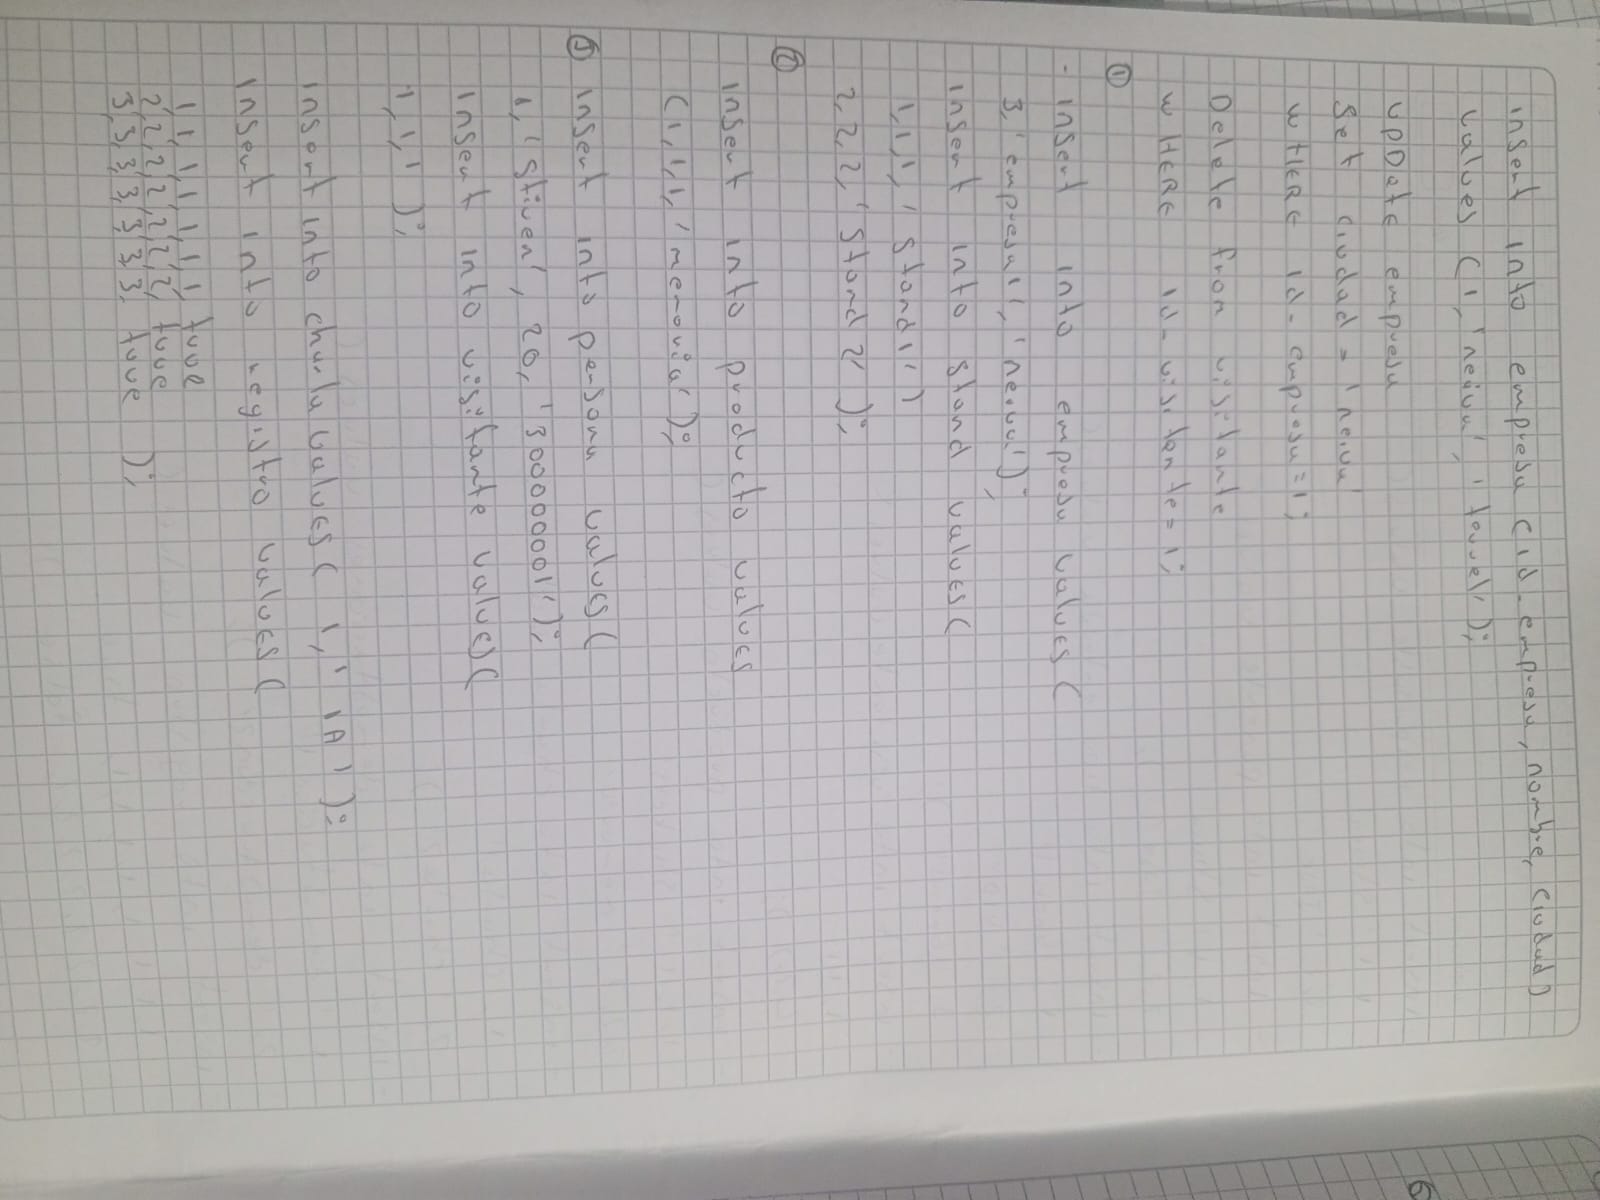 insert into empresa (id_empresa, nombre, ciudad)
values (1, 'neiva',
upDate empresa
Set ciudad = 'neiva'
wHERE id_empresa = 1;
Delete from visitante
wHERE id_visitante = 1;
①
- insert into empresa values (
3, 'empresa1', 'neiva');
insert into stand values (
1,1,1, 'stand 1')
2,2,2, 'stand 2' );
②
insert into producto values
(1,1,1, 'memoria');
③ insert into persona values (
1, 'Stiven', 20,
insert into visitante values (
1,1,1 );
insert into charla values ( 1, 'IA');
insert into registro values (
1, 1, 1, 1, 1, 1, 1, true
2, 2, 2, 2, 2, 2, 2, true
3, 3, 3, 3, 3, 3, 3, true );
6